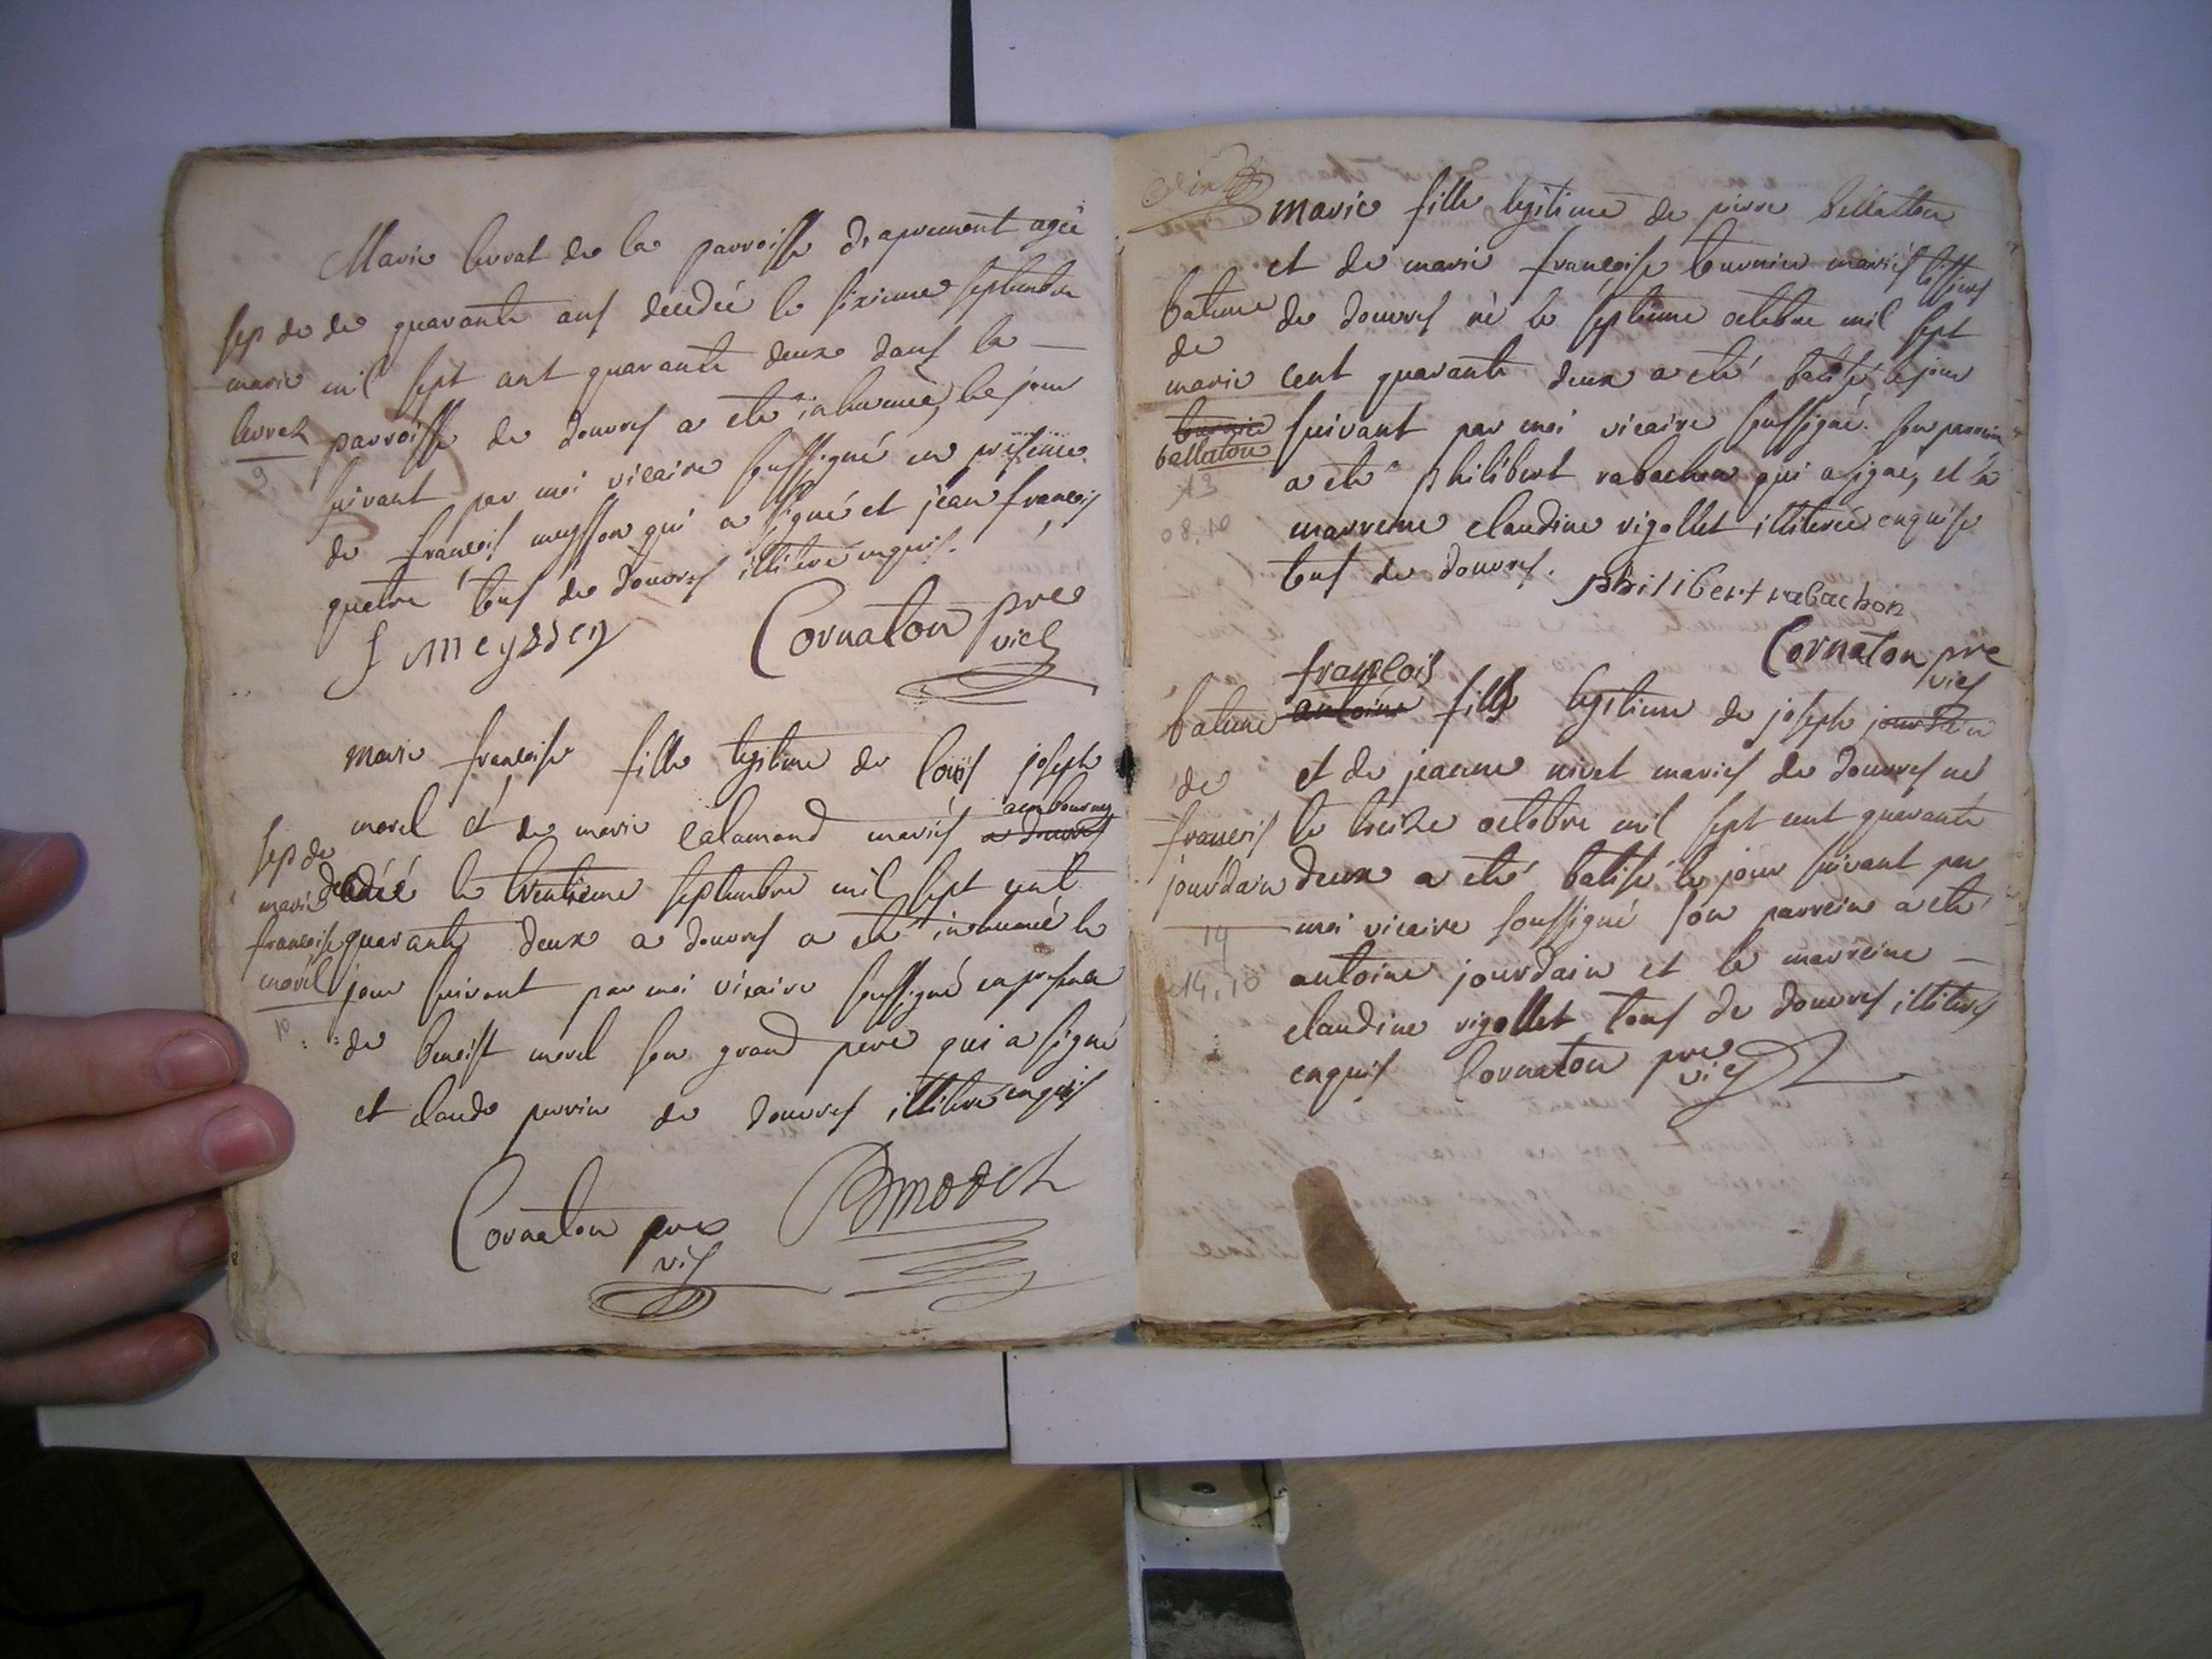 Marie levrat de la parroisse d'apremont agée
sep de
de quarante ans decedée le sixieme septembre
marie
mil sept cent quarante deux dans la
levrat
parroisse de douvres a eté inhumée, le jour
9
suivant par moi vicaire soussigné en presence
de françois meysson qui a signé et jean françois
tous de douvres illiteré enquis.
f meysson
Cornaton pre
vic
marie françoise fille legitime de louis joseph
morel et de marie calamand mariés
a douvres
ambournay
sep de
marie
françoise
morel
10
decedée le trentieme septembre mil sept cent
quarante deux a douvres a eté inhumée le
jour suivant par moi vicaire soussigné en presence
de benoist morel son grand pere qui a signé
et claude perrin de douvres illiteré enquis
Cornaton pre
vic
marie fille legitime de pierre bellaton
et de marie françoise tournier mariés
batème
de
marie
tournier
bellaton
13
08.10
de douvres né le septieme octobre mil sept
cent quarante deux a eté batisé le jour
suivant par moi vicaire soussigné. son parrein
a eté philibert rabachon qui a signé, et la
marreine claudine vigollet illiterée enquise
tous de douvres.
philibert rabachon
Cornaton pre
vic
françois
antoine fils legitime de joseph jourdain
batème
de
françois
jourdain
14
14.10
et de jeanne nivet mariés de douvres né
le treize octobre mil sept cent quarante
deux a eté batisé le jour suivant par
moi vicaire soussigné son parrein a eté
antoine jourdain et la marreine
claudine vigollet tous de douvres illiterés
enquis Cornaton pre
vic